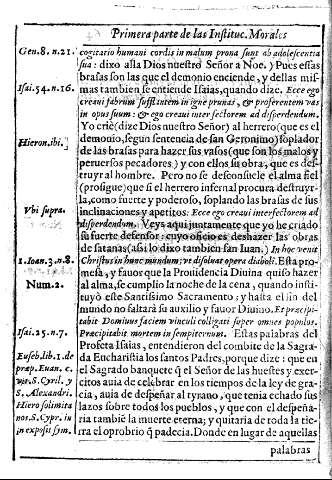 Primera parte de las Instituc. Morales
Gen.8.n.21.
Isai.54.n.16.
Hieron.ibi.
Vbi supra.
1.Ioan.3.n.8.
Num.2.
Isai.25.n.7.
Euseb.lib.1.de
præp.Euan. c.
S. Cyril. y
S. Alexandri.
Hierosolimita
nos. S. Cypr. in
in exposit sym.
cogitatio humani cordis in malum prona sunt ab adolescentia
sua: dixo allà Dios nuestro Señor a Noe. ) Pues essas
brasas son las que el demonio enciende, y dellas mis-
mas tambien se entiende Isaias, quando dize. Ecce ego
creaui fabrum sufflantem in igne prunas, & proferentem vas
in opus suum: & ego creaui interfectorem ad disperdendum.
Yo criè (dize Dios nuestro Señor) al herrero (que es el
demonio, segun sentencia de san Geronimo) soplador
de las brasas para hazer sus vasos (que son los malos y
peruersos pecadores) y con ellos su obra, que es des-
truyr al hombre. Pero no se desconsuele el alma fiel
(prosigue) que si el herrero infernal procura destruyr-
la, como fuerte y poderoso, soplando las brasas de sus
inclinaciones y apetitos: Ecce ego creaui interfectorem ad
disperdendum. Veys aqui juntamente que yo he criado
su fuerte defensor: cuyo oficio es deshazer las obras
de satanas (assi lo dixo tambien san Iuan.) In hoc venit
Christus in hunc mundum, vt dissoluat opera diaboli. Esta pro-
mesa, y fauor que la Prouidencia Diuina quiso hazer
al alma, se cumplio la noche de la cena, quando insti-
tuyò este Santissimo Sacramento: y hasta el fin del
mundo no faltarà su auxilio y fauor Diuino. Et præcipi-
tabit Dominus faciem vinculi colligati super omnes populos.
Præcipitabit mortem in sempiternum. Estas palabras del
Profeta Isaias, entendieron del combite de la Sagra-
da Eucharistia los santos Padres, porque dize: que en
el Sagrado banquete q̃ el Señor de las huestes y exer-
citos auia de celebrar en los tiempos de la ley de gra-
cia, auia de despeñar al tyrano, que tenia echado sus
lazos sobre todos los pueblos, y que con el despeña-
ria tambiē la muerte eterna; y quitaria de toda la tie-
rra el oprobrio q̃ padecia. Donde en lugar de aquellas
palabras